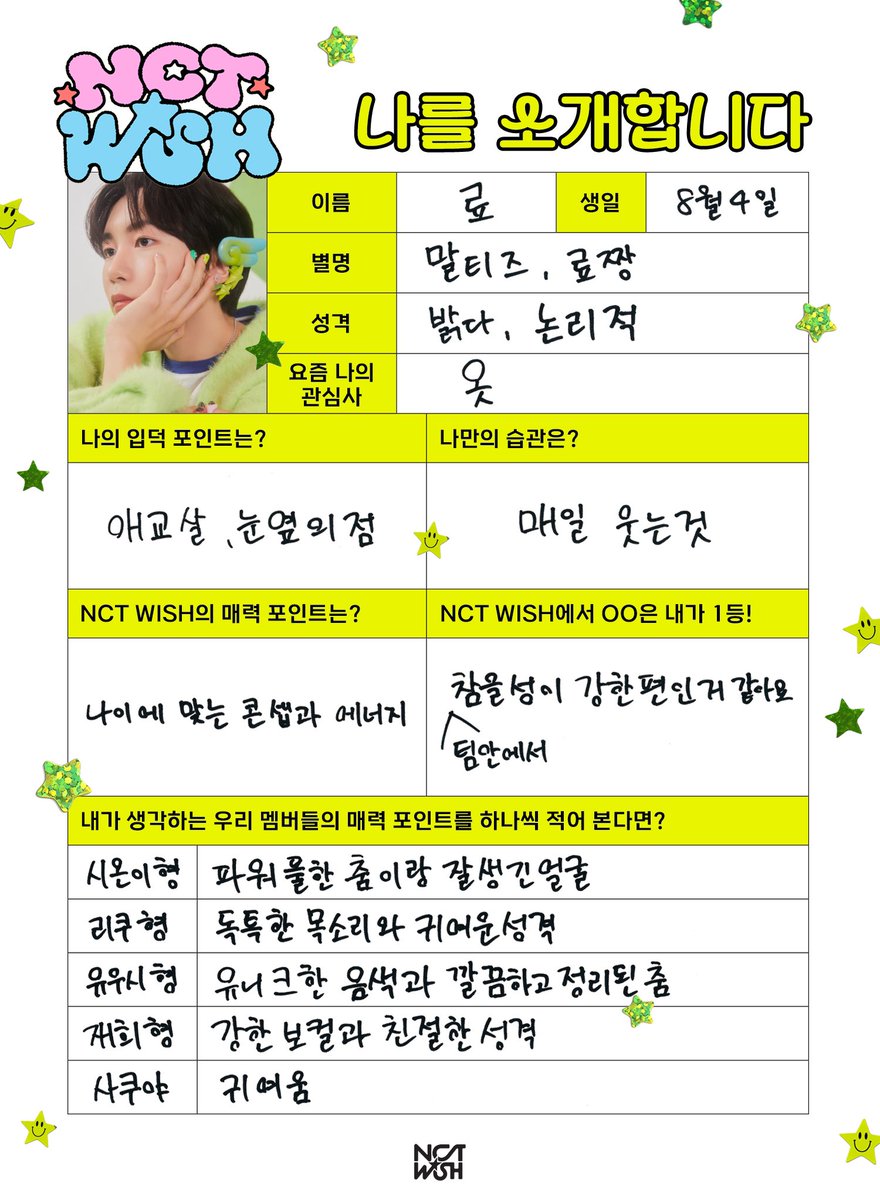 NCT
WISH
나를 소개합니다
이름 료 생일 8월 4일
별명 말티즈, 료짱
성격 밝다, 논리적
요즘 나의
관심사
옷
나의 입덕 포인트는? 나만의 습관은?
애교살, 눈옆의점 매일 웃는것
NCT WISH의 매력 포인트는? NCT WISH에서 OO은 내가 1등!
나이에 맞는 콘셉과 에너지
참을성이 강한편인거 같아요
팀안에서
내가 생각하는 우리 멤버들의 매력 포인트를 하나씩 적어 본다면?
시온이형 파워풀한 춤이랑 잘생긴얼굴
리쿠형 독특한 목소리와 귀여운성격
유우시형 유니크한 음색과 깔끔하고정리된 춤
재희형 강한보컬과 친절한성격
사쿠야 귀여움
NCT
WISH